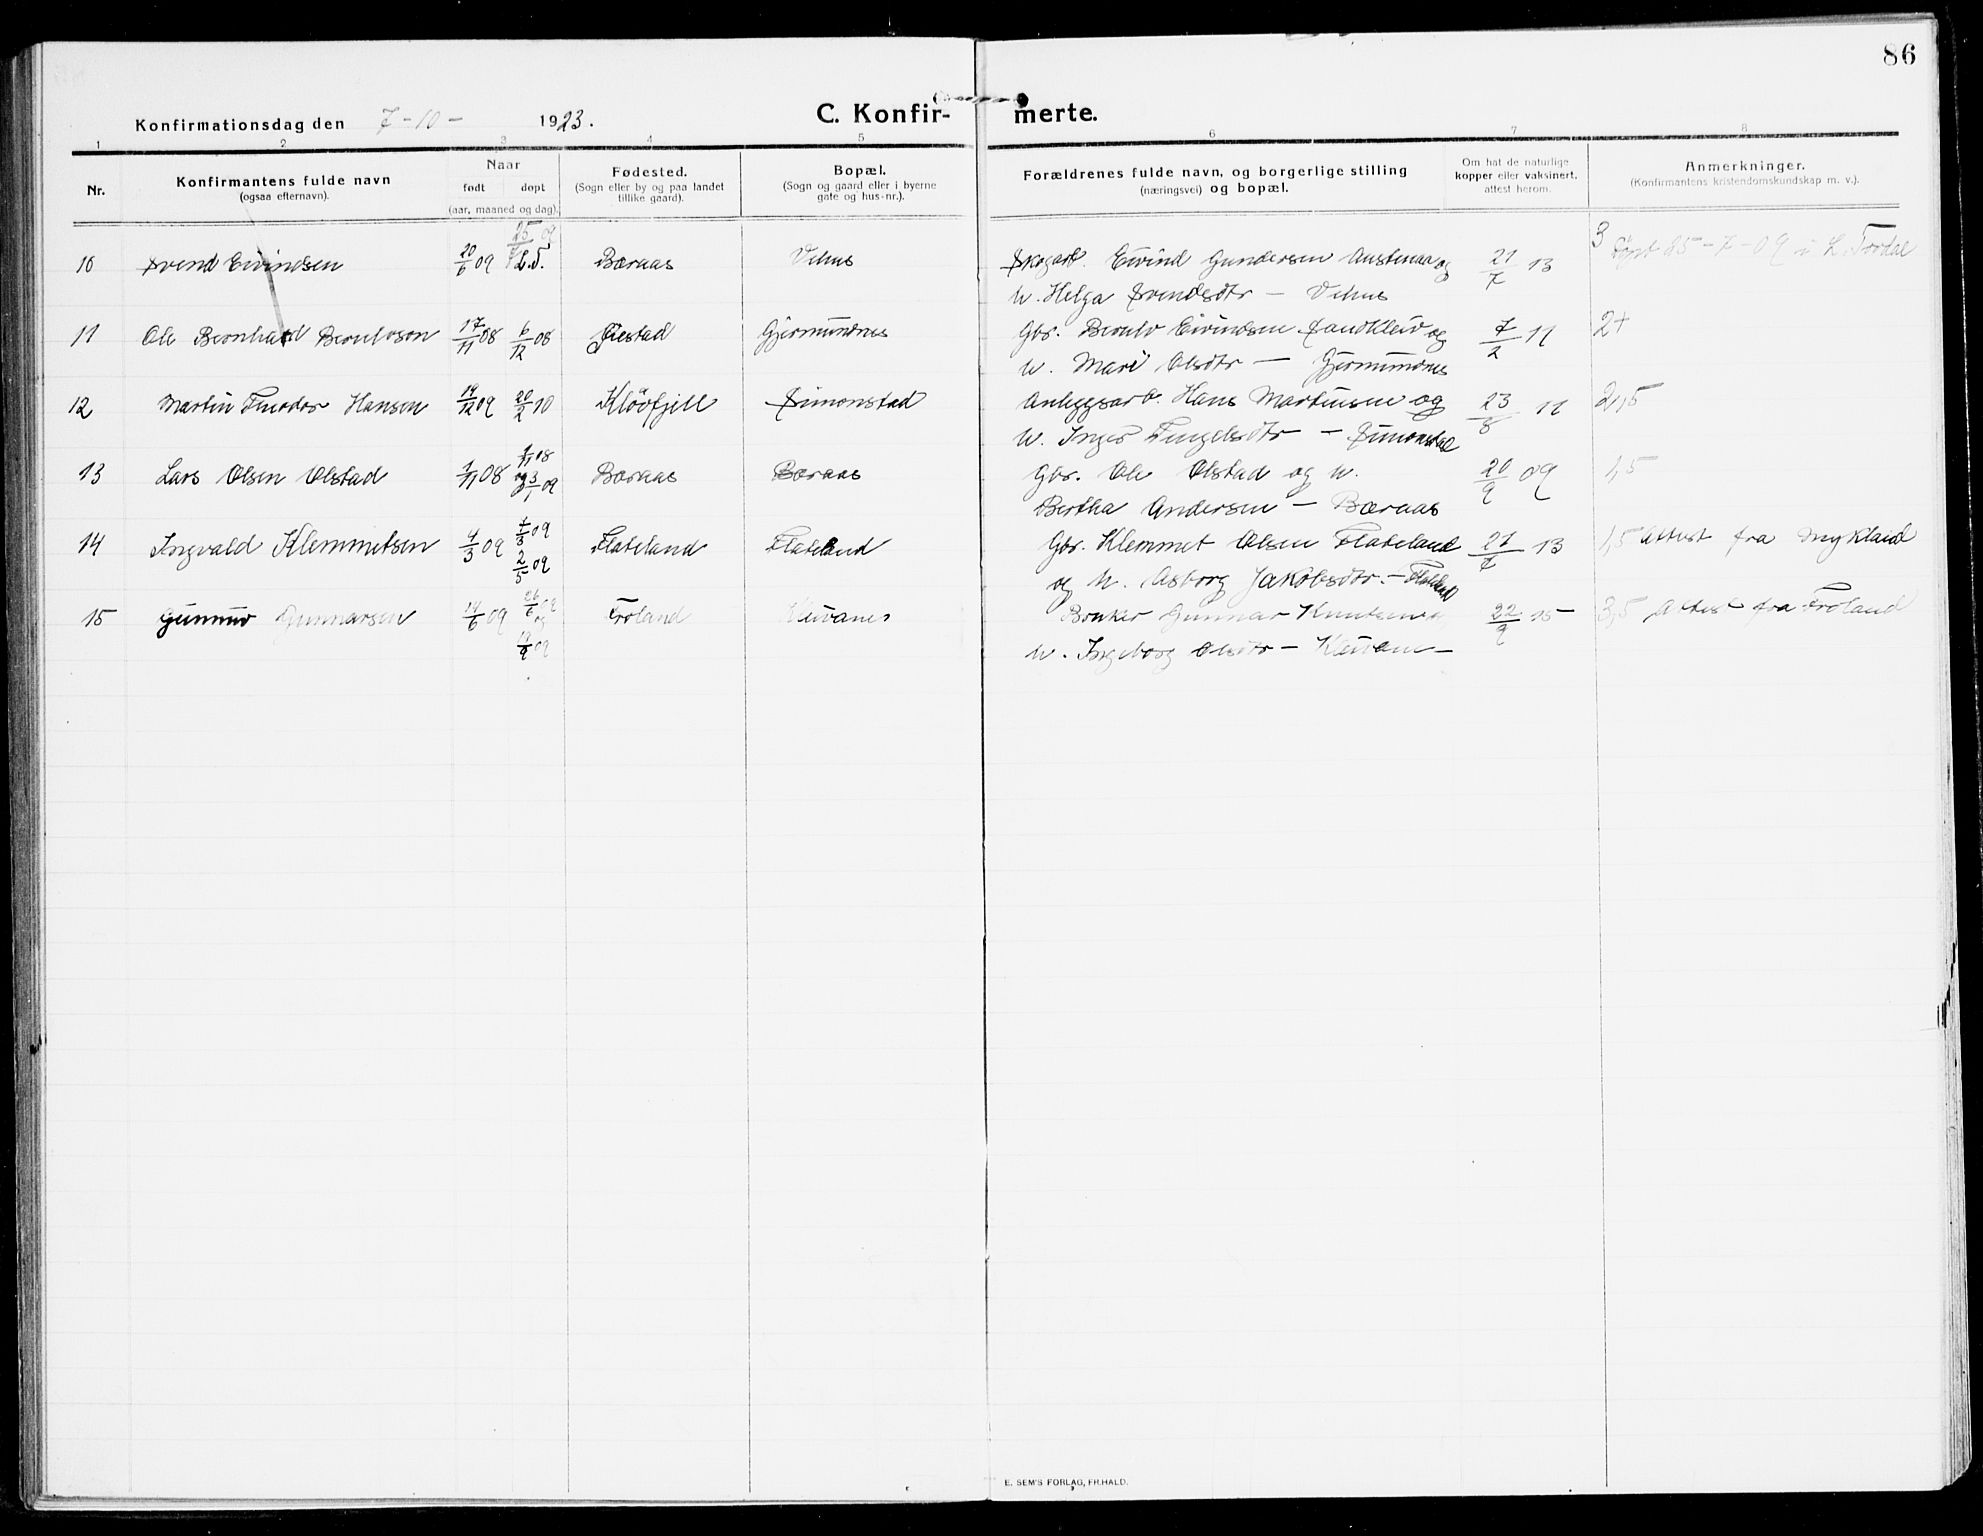 86
Konfirmationsdag den 7-10- 1923.
C. Konfir- merte.
1 2 3 4 5 6 7 8
Nr.
Konfirmantens fulde navn
(ogsaa efternavn).
Naar
født døpt
(aar, maaned og dag).
Fødested.
(Sogn eller by og paa landet
tillike gaard).
Bopæl.
(Sogn og gaard eller i byerne
gate og hus-nr.).
Forældrenes fulde navn, og borgerlige stilling
(næringsvei) og bopæl.
Om hat de naturlige
kopper eller vaksinert,
attest herom.
Anmerkninger.
(Konfirmantens kristendomskundskap m. v.).
10 Svend Eivindsen 20/6 09 Baraas Vehus Skogarb. Eivind Gundersen Austenaa og 21/7 13 3 Døpt 25-7-09 i L. Tordal
h. Helga Svendsdtr — Vehus
11 Ole Bernhard Bernlvson 17/11 08 6/12 08 Gjermundnes Gbr. Eivindsen Sandkleiv og 7/2 11 2+
h. Mari Olsdtr — Gjermundnes
12 Martin Theodor Hansen 19/12 09 20/2 10 Kløvfjell Simonstad Anleggsarb. Hans Martinsen og 23/8 11 2,5
h. Inger Tengelsdtr — Simonstad
13 Lars Olsen Olstad 1/11 08 1/11 08 og 3/1 09 Baraas Baraas Gbr. Ole Olstad og h. 20/9 09 1,5
Bertha Andersen — Baraas
14 Ingvald Klemmetsen 4/3 09 2/5 09 Flateland Flateland Gbr. Klemmet Olsen Flateland 27/7 13 1,5 Attest fra Mykland
og h. Asborg Jakobsdtr. — Flateland
15 Gunnuv Gunnarsen 14/6 09 26/6 09 og 19/9 09 Froland Kleivanes Bruker Gunnar Knutsen 22/9 15 3,5 Attest fra Froland
h. Ingeborg Olsdtr —
E. SEM'S FORLAG, FR.HALD.